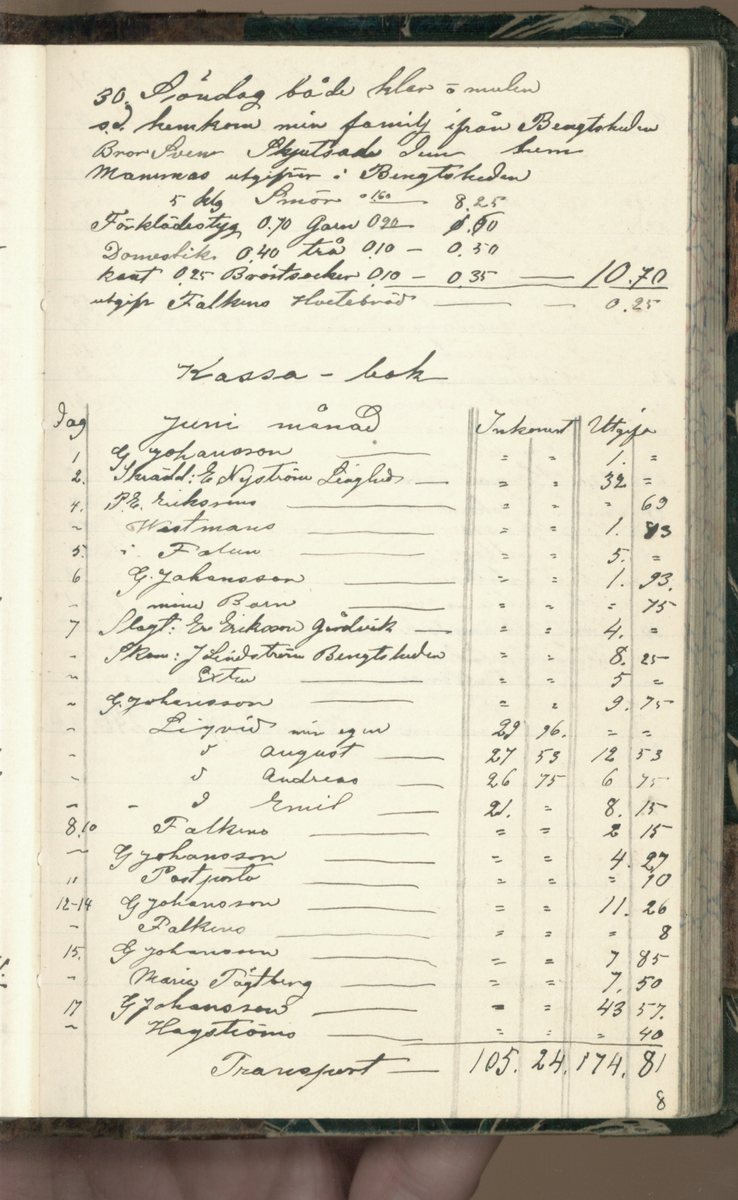 30. Söndag både klar o mulen
s.d. hemkom min familj ifrån Bengtsheden
Bror Sven Skjutsade dem hem
Mammas utgifter i Bengtsheden
5 klg Smör 1.60 8.25
Förklädestyg 0.70 Garn 0.90 1.60
Domestik 0.40 trå 0.10 — 0.50
kant 0.25 Bröstsocker 0.10 — 0.35 — 10.70
utgift Falkens Hvetebröd — 0.25
Kassa-bok
Dag Juni månad Inkomst Utgift
1 G Johansson — " " 1. "
2. Skrädd: E Nyström Linghed — " " 32 "
4. P.E. Erikssons — " " " 69
" Westmans — " " 1. 83
5. i Falun — " " 5. "
6 G. Johansson — " " 1. 93.
" mina Barn — " " " 75
7 Slagt: Er Eriksson — " " 4. "
" Skom: J Lindström Bengtsheden " " 8. 25
" Extra — " " 5 "
" G. Johansson — " " 9. 75
" Liqvid min egen 29 96. " "
" d August — 27 53 12 53
" d Andreas — 26 75 6 75
" " d Emil — 21. " 8. 15
8.10 Falkens — " " 2 15
" G Johansson — " " 4. 27
" Postporto — " " " 10
12-14 G Johansson — " " 11. 26
" Falkens — " " " 8
15. G Johansson — " " 7 85
" Maria Tägtberg — " " 7. 50
17 G Johansson — " " 43 57.
" Hagströms — " " " 40
Transport — 105. 24. 174. 81
8